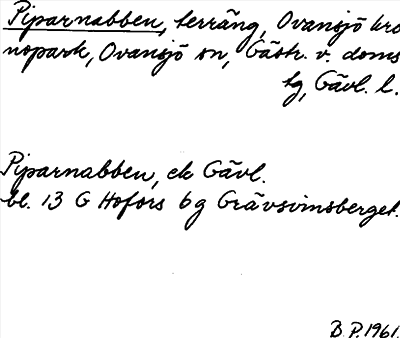 Piparnabben, terräng, Ovansjö kro
nopark, Ovansjö sn, Gästr. v. doms
tg, Gävl. l.
Piparnabben, ek Gävl.
bl. 13 G Hofors 6 g Grävsvinsberget.
B.P. 1961.